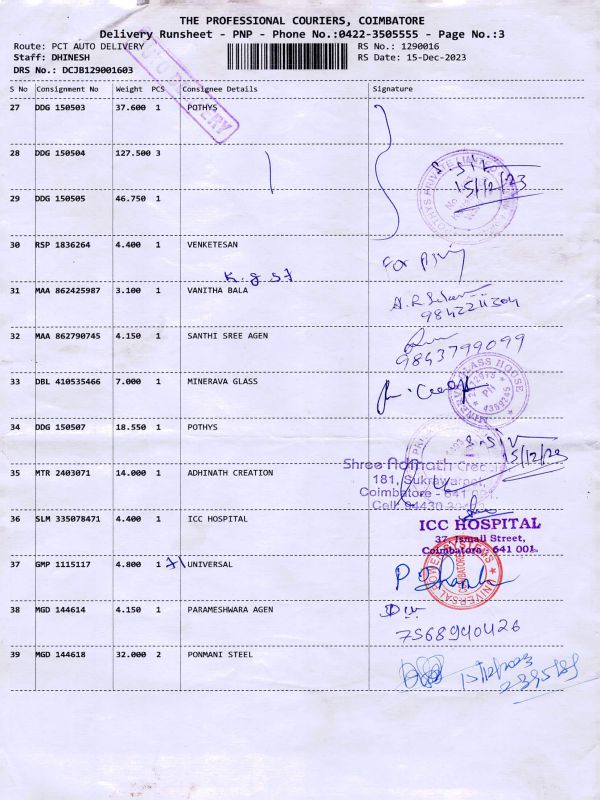 THE PROFESSIONAL COURIERS, COIMBATORE
Delivery Runsheet - PNP - Phone No.:0422-3505555 - Page No.:3
Route: PCT AUTO DELIVERY RS No.: 1290016
Staff: DHINESH RS Date: 15-Dec-2023
DRS No.: DCJB129001603
S No Consignment No Weight PCS Consignee Details Signature
27 DDG 150503 37.600 1 POTHYS
28 DDG 150504 127.500 3
15/12/23
29 DDG 150505 46.750 1
30 RSP 1836264 4.400 1 VENKETESAN
for
31 MAA 862425987 3.100 1 VANITHA BALA
32 MAA 862790745 4.150 1 SANTHI SREE AGEN
9843799099
33 DBL 410535466 7.000 1 MINERAVA GLASS
MINERAVA GLASS HOUSE
34 DDG 150507 18.550 1 POTHYS
15/12/23
Shree Adinath Creation
35 MTR 2403071 14.000 1 ADHINATH CREATION
181, Sukrawarpet,
Coimbatore - 641 001.
36 SLM 335078471 4.400 1 ICC HOSPITAL
ICC HOSPITAL
37, Ismail Street,
Coimbatore - 641 001.
37 GMP 1115117 4.800 1 UNIVERSAL
UNIVERSAL POWER SYSTEMS
38 MGD 144614 4.150 1 PARAMESHWARA AGEN
7568940426
39 MGD 144618 32.000 2 PONMANI STEEL
15/12/2023